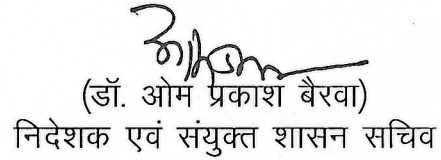 (डॉ. ओम प्रकाश बैरवा)
निदेशक एवं संयुक्त शासन सचिव